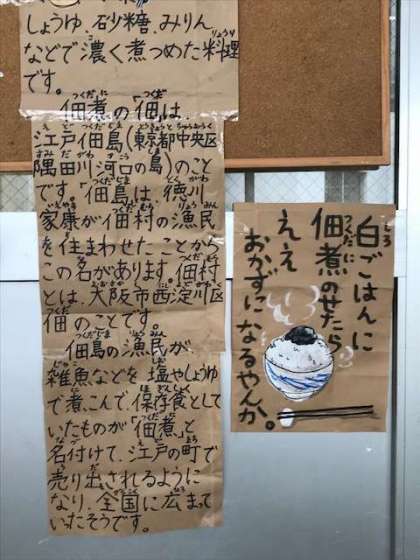 しょうゆ、砂糖、みりん
などで濃く煮つめた料理
です。
佃煮の「佃」は、
江戸佃島(東京都中央区
隅田川河口の島)のこと
です。「佃島」は、徳川
家康が佃村の漁民
を住まわせたことから
この名があります。佃村
とは、大阪市西淀川区
佃のことです。
佃島の漁民が、
雑魚などを塩やしょうゆ
で煮こんで、保存食として
いたものが「佃煮」と
名付けて、江戸の町で
売り出されるように
なり、全国に広まって
いったそうです。
白ごはんに
佃煮のせたら
ええ
おかずになるやんか。